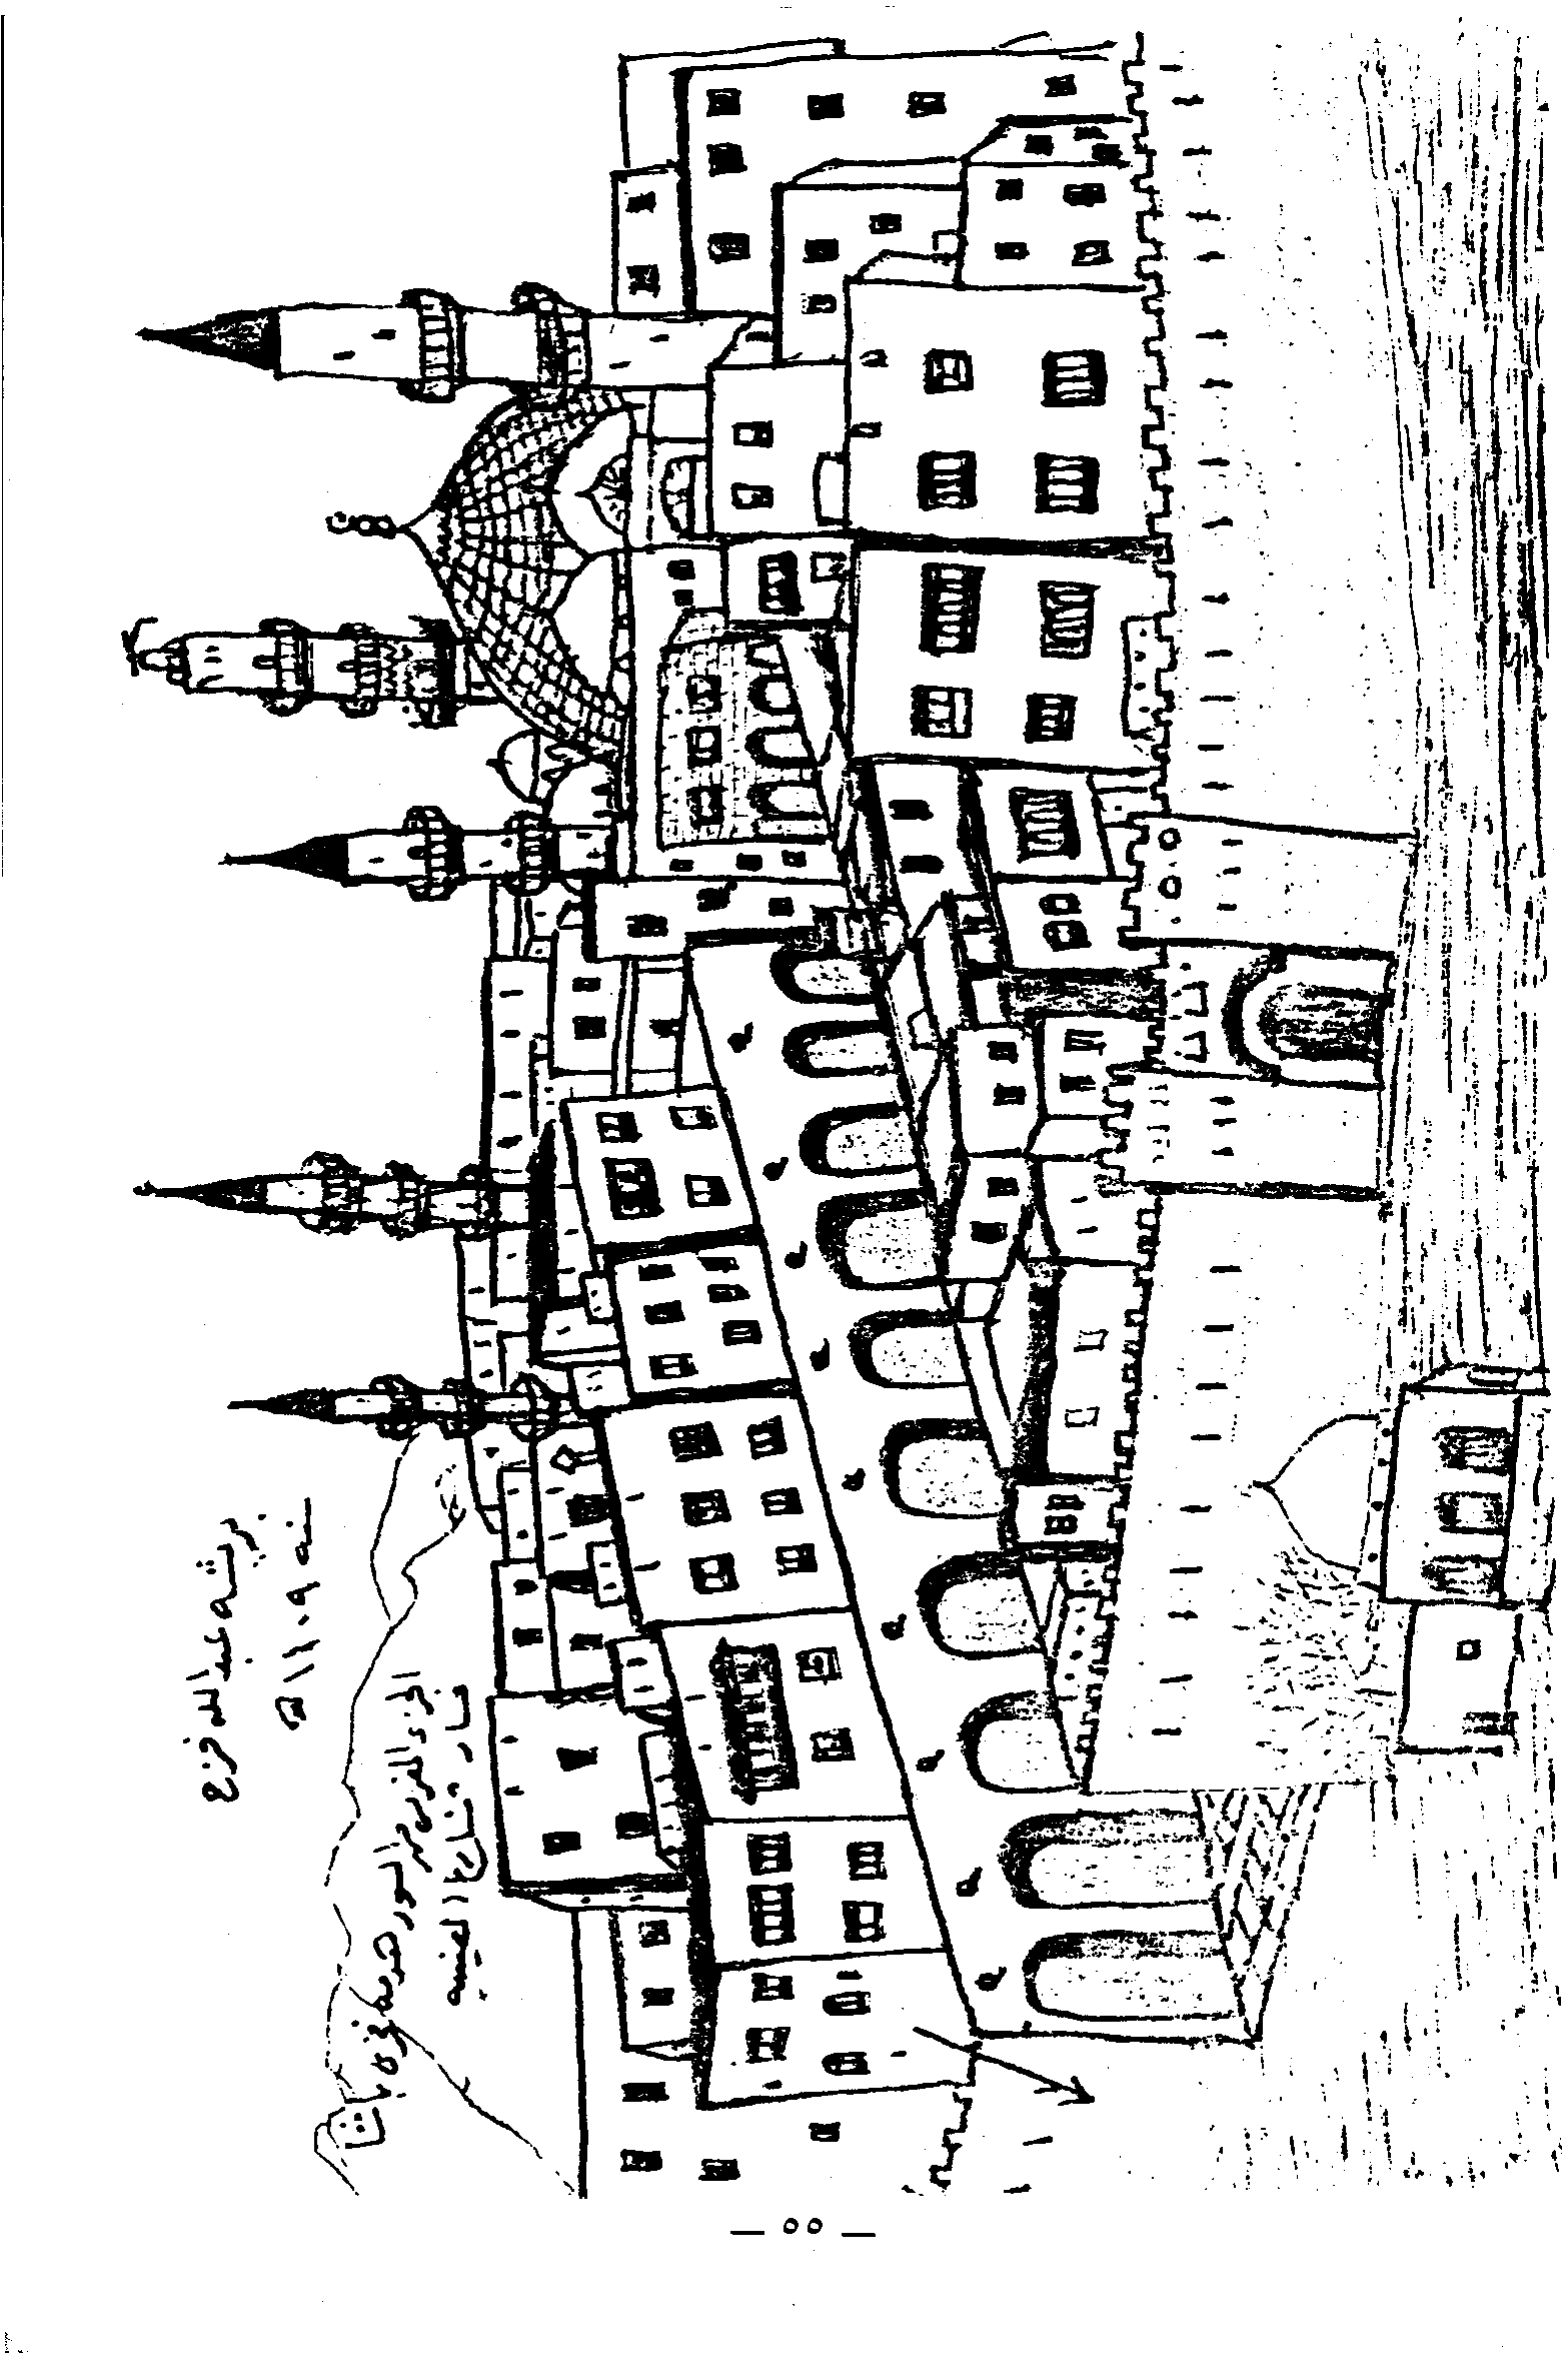 بريشة عبدالله فرج
سنه ١١٠٩ ه
الجزء المفرس من السور هدمه فخري باشا
صار شارع العينيه
— ٥٥ —